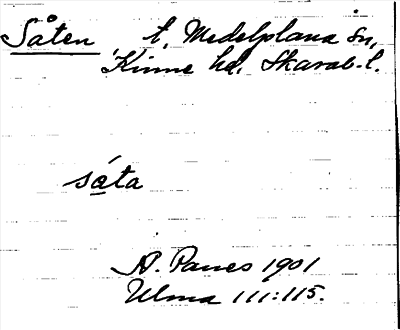 Såten, t, Medelplana sn,
Kinne hd, Skarab. l.
sáta
N. Panes 1901
Ulma 111:115.